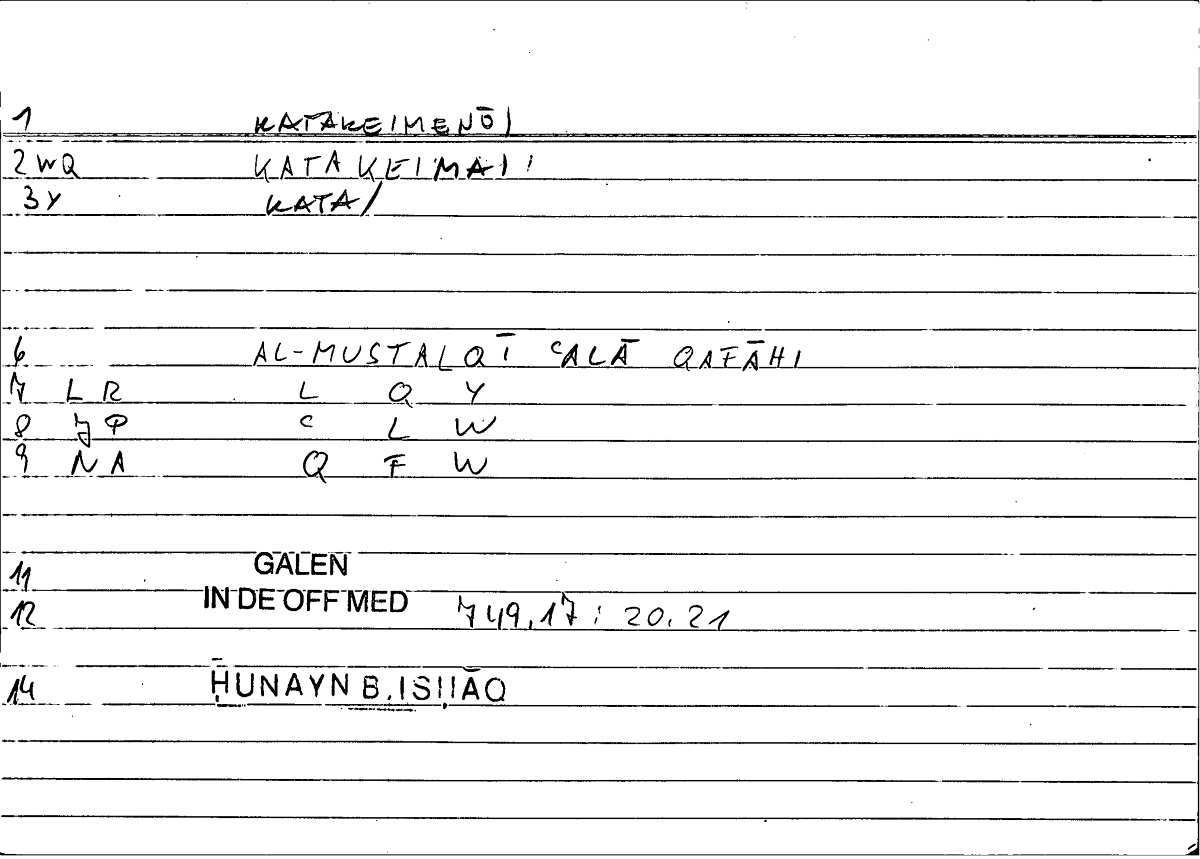 1 KATAKEIMENŌI
2 WQ KATAKEIMAI
3 Y KATA/
6 AL-MUSTALQĪ ʿALĀ QAFĀHI
7 LR L Q Y
8 JP ʿ L W
9 NA Q F W
11 GALEN
12 IN DE OFF MED 749,17 : 20.21
14 ḤUNAYN B. ISḤĀQ